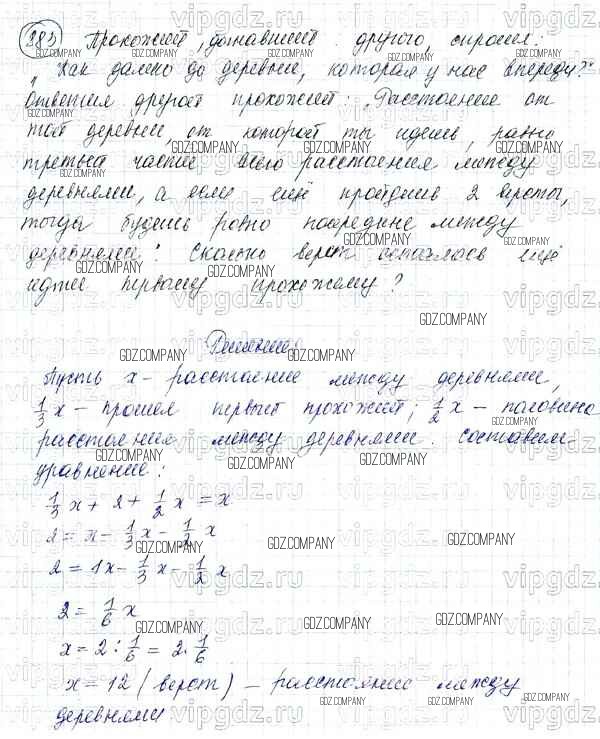 285 Прохожий, догнавший другого, спросил:
„Как далеко до деревни, которая у нас впереди?"
Ответил другой прохожий: „Расстояние от
той деревни, от которой ты идешь, равно
третьей части всего расстояния между
деревнями, а если ещё пройдёшь 2 версты,
тогда будешь ровно посередине между
деревнями". Сколько вёрст осталось ещё
идти первому прохожему?
Решение:
Пусть x - расстояние между деревнями,
1/3 x - прошел первый прохожий; 1/2 x - половина
расстояния между деревнями. Составим
уравнение:
1/3 x + 2 + 1/2 x = x
2 = x - 1/3 x - 1/2 x
2 = 1x - 1/3 x - 1/2 x
2 = 1/6 x
x = 2 : 1/6 = 2 · 1/6
x = 12 (верст) - расстояние между
деревнями